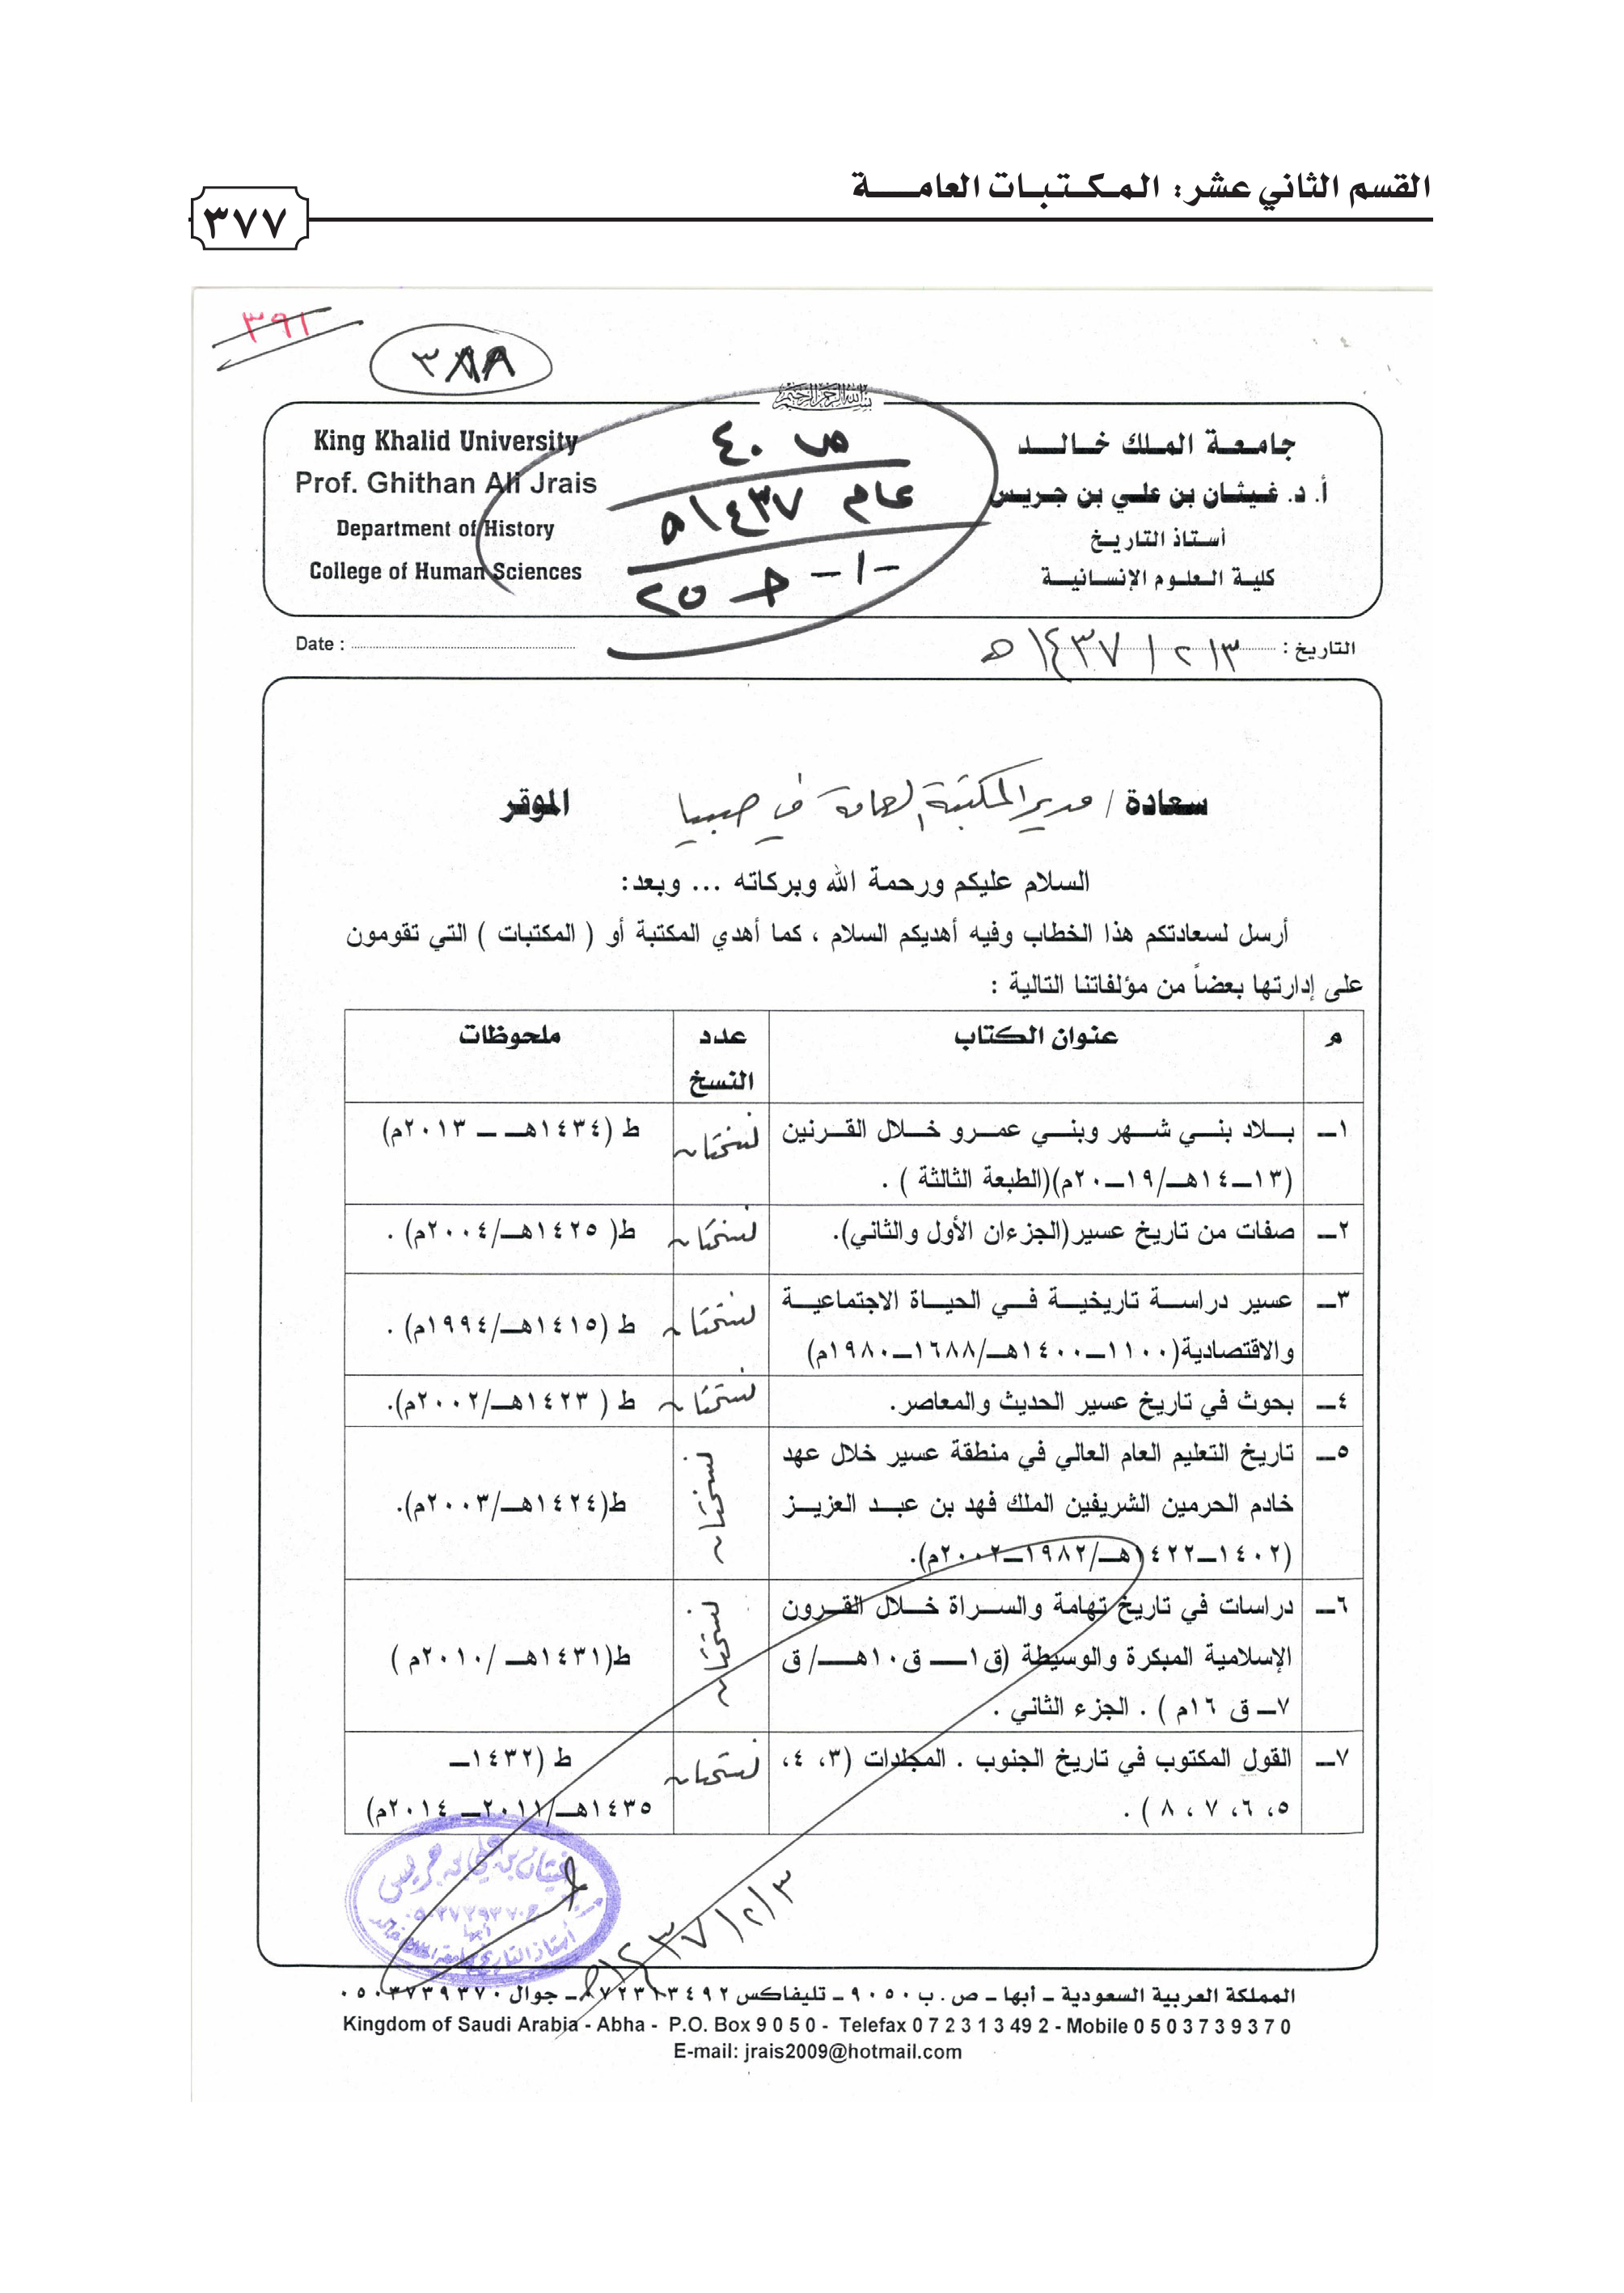 القسم الثاني عشر: المكتبات العامة
٣٧٧
٣٩١
٣٨٨
بسم الله الرحمن الرحيم
King Khalid University
Prof. Ghithan Ali Jrais
Department of History
College of Human Sciences
ص ٤٠
عام ١٤٣٧هـ
-١- ج ٢٥
جامعة الملك خالد
أ. د. غيثان بن علي بن جريس
أستاذ التاريخ
كلية العلوم الإنسانية
Date :
التاريخ : ٣/٢/١٤٣٧هـ
سعادة / مدير المكتبة العامة في صبيا الموقر
السلام عليكم ورحمة الله وبركاته ... وبعد:
أرسل لسعادتكم هذا الخطاب وفيه أهديكم السلام ، كما أهدي المكتبة أو ( المكتبات ) التي تقومون
على إدارتها بعضاً من مؤلفاتنا التالية :
م عنوان الكتاب عدد النسخ ملحوظات
١ـ بلاد بني شهر وبني عمرو خلال القرنين نسختان ط (١٤٣٤هـ ـ ٢٠١٣م)
(١٣ـ١٤هـ/١٩ـ٢٠م)(الطبعة الثالثة ) .
٢ـ صفات من تاريخ عسير(الجزءان الأول والثاني). نسختان ط( ١٤٢٥هـ/٢٠٠٤م) .
٣ـ عسير دراسة تاريخية في الحياة الاجتماعية نسختان ط (١٤١٥هـ/١٩٩٤م) .
والاقتصادية(١١٠٠ـ١٤٠٠هـ/١٦٨٨ـ١٩٨٠م)
٤ـ بحوث في تاريخ عسير الحديث والمعاصر. نسختان ط ( ١٤٢٣هـ/٢٠٠٢م).
٥ـ تاريخ التعليم العام العالي في منطقة عسير خلال عهد
خادم الحرمين الشريفين الملك فهد بن عبد العزيز نسختان ط(١٤٢٤هـ/٢٠٠٣م).
(١٤٠٢ـ١٤٢٢هـ/١٩٨٢ـ٢٠٠٢م).
٦ـ دراسات في تاريخ تهامة والسراة خلال القرون
الإسلامية المبكرة والوسيطة (ق١ـ ق١٠هـ/ ق نسختان ط(١٤٣١هـ /٢٠١٠م )
٧ـ ق ١٦م ) . الجزء الثاني .
٧ـ القول المكتوب في تاريخ الجنوب . المجلدات (٣، ٤، نسختان ط (١٤٣٢ـ
٥، ٦، ٧ ، ٨ ) . ١٤٣٥هـ/٢٠١١ـ ٢٠١٤م)
غيثان بن علي بن جريس
ج٠٥٠٣٧٣٩٣٧٠
أبها
٣/٢/١٤٣٧هـ
المملكة العربية السعودية ـ أبها ـ ص. ب ٩٠٥٠ ـ تليفاكس ٠٧٢٣١٣٤٩٢ ـ جوال ٠٥٠٣٧٣٩٣٧٠
Kingdom of Saudi Arabia - Abha - P.O. Box 9 0 5 0 - Telefax 0 7 2 3 1 3 49 2 - Mobile 0 5 0 3 7 3 9 3 7 0
E-mail: jrais2009@hotmail.com